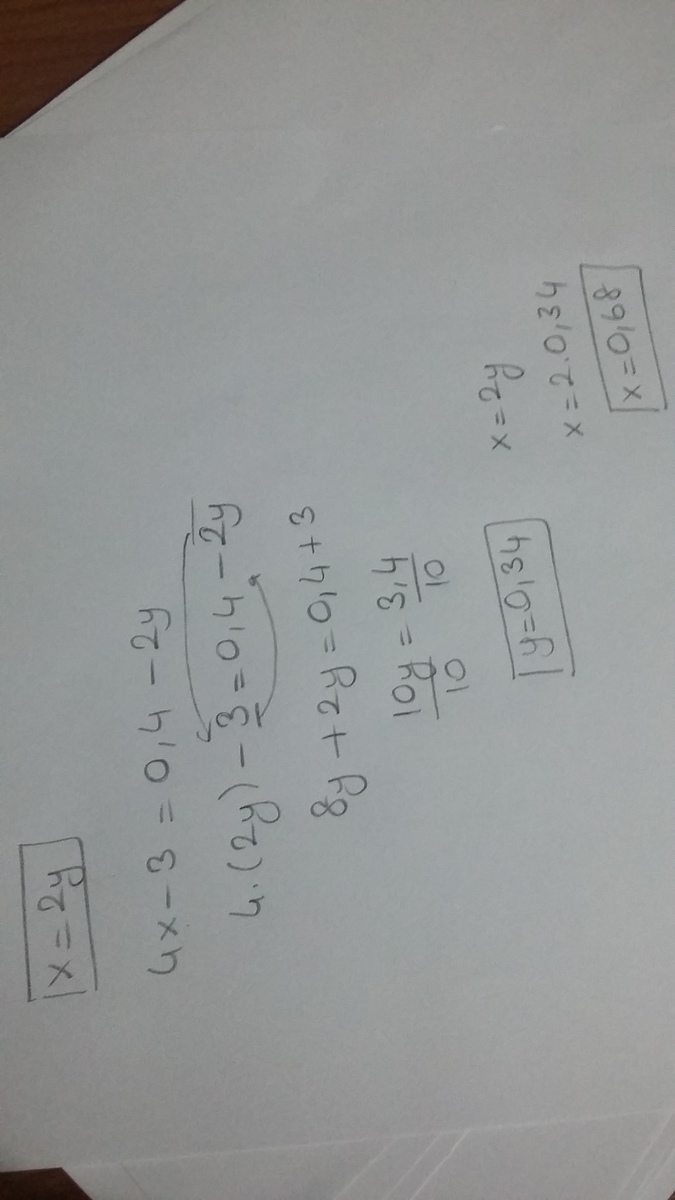 x = 2y
4x - 3 = 0,4 - 2y
4.(2y) - 3 = 0,4 - 2y
8y + 2y = 0,4 + 3
10y/10 = 3,4/10
y = 0,34
x = 2y
x = 2.0,34
x = 0,68